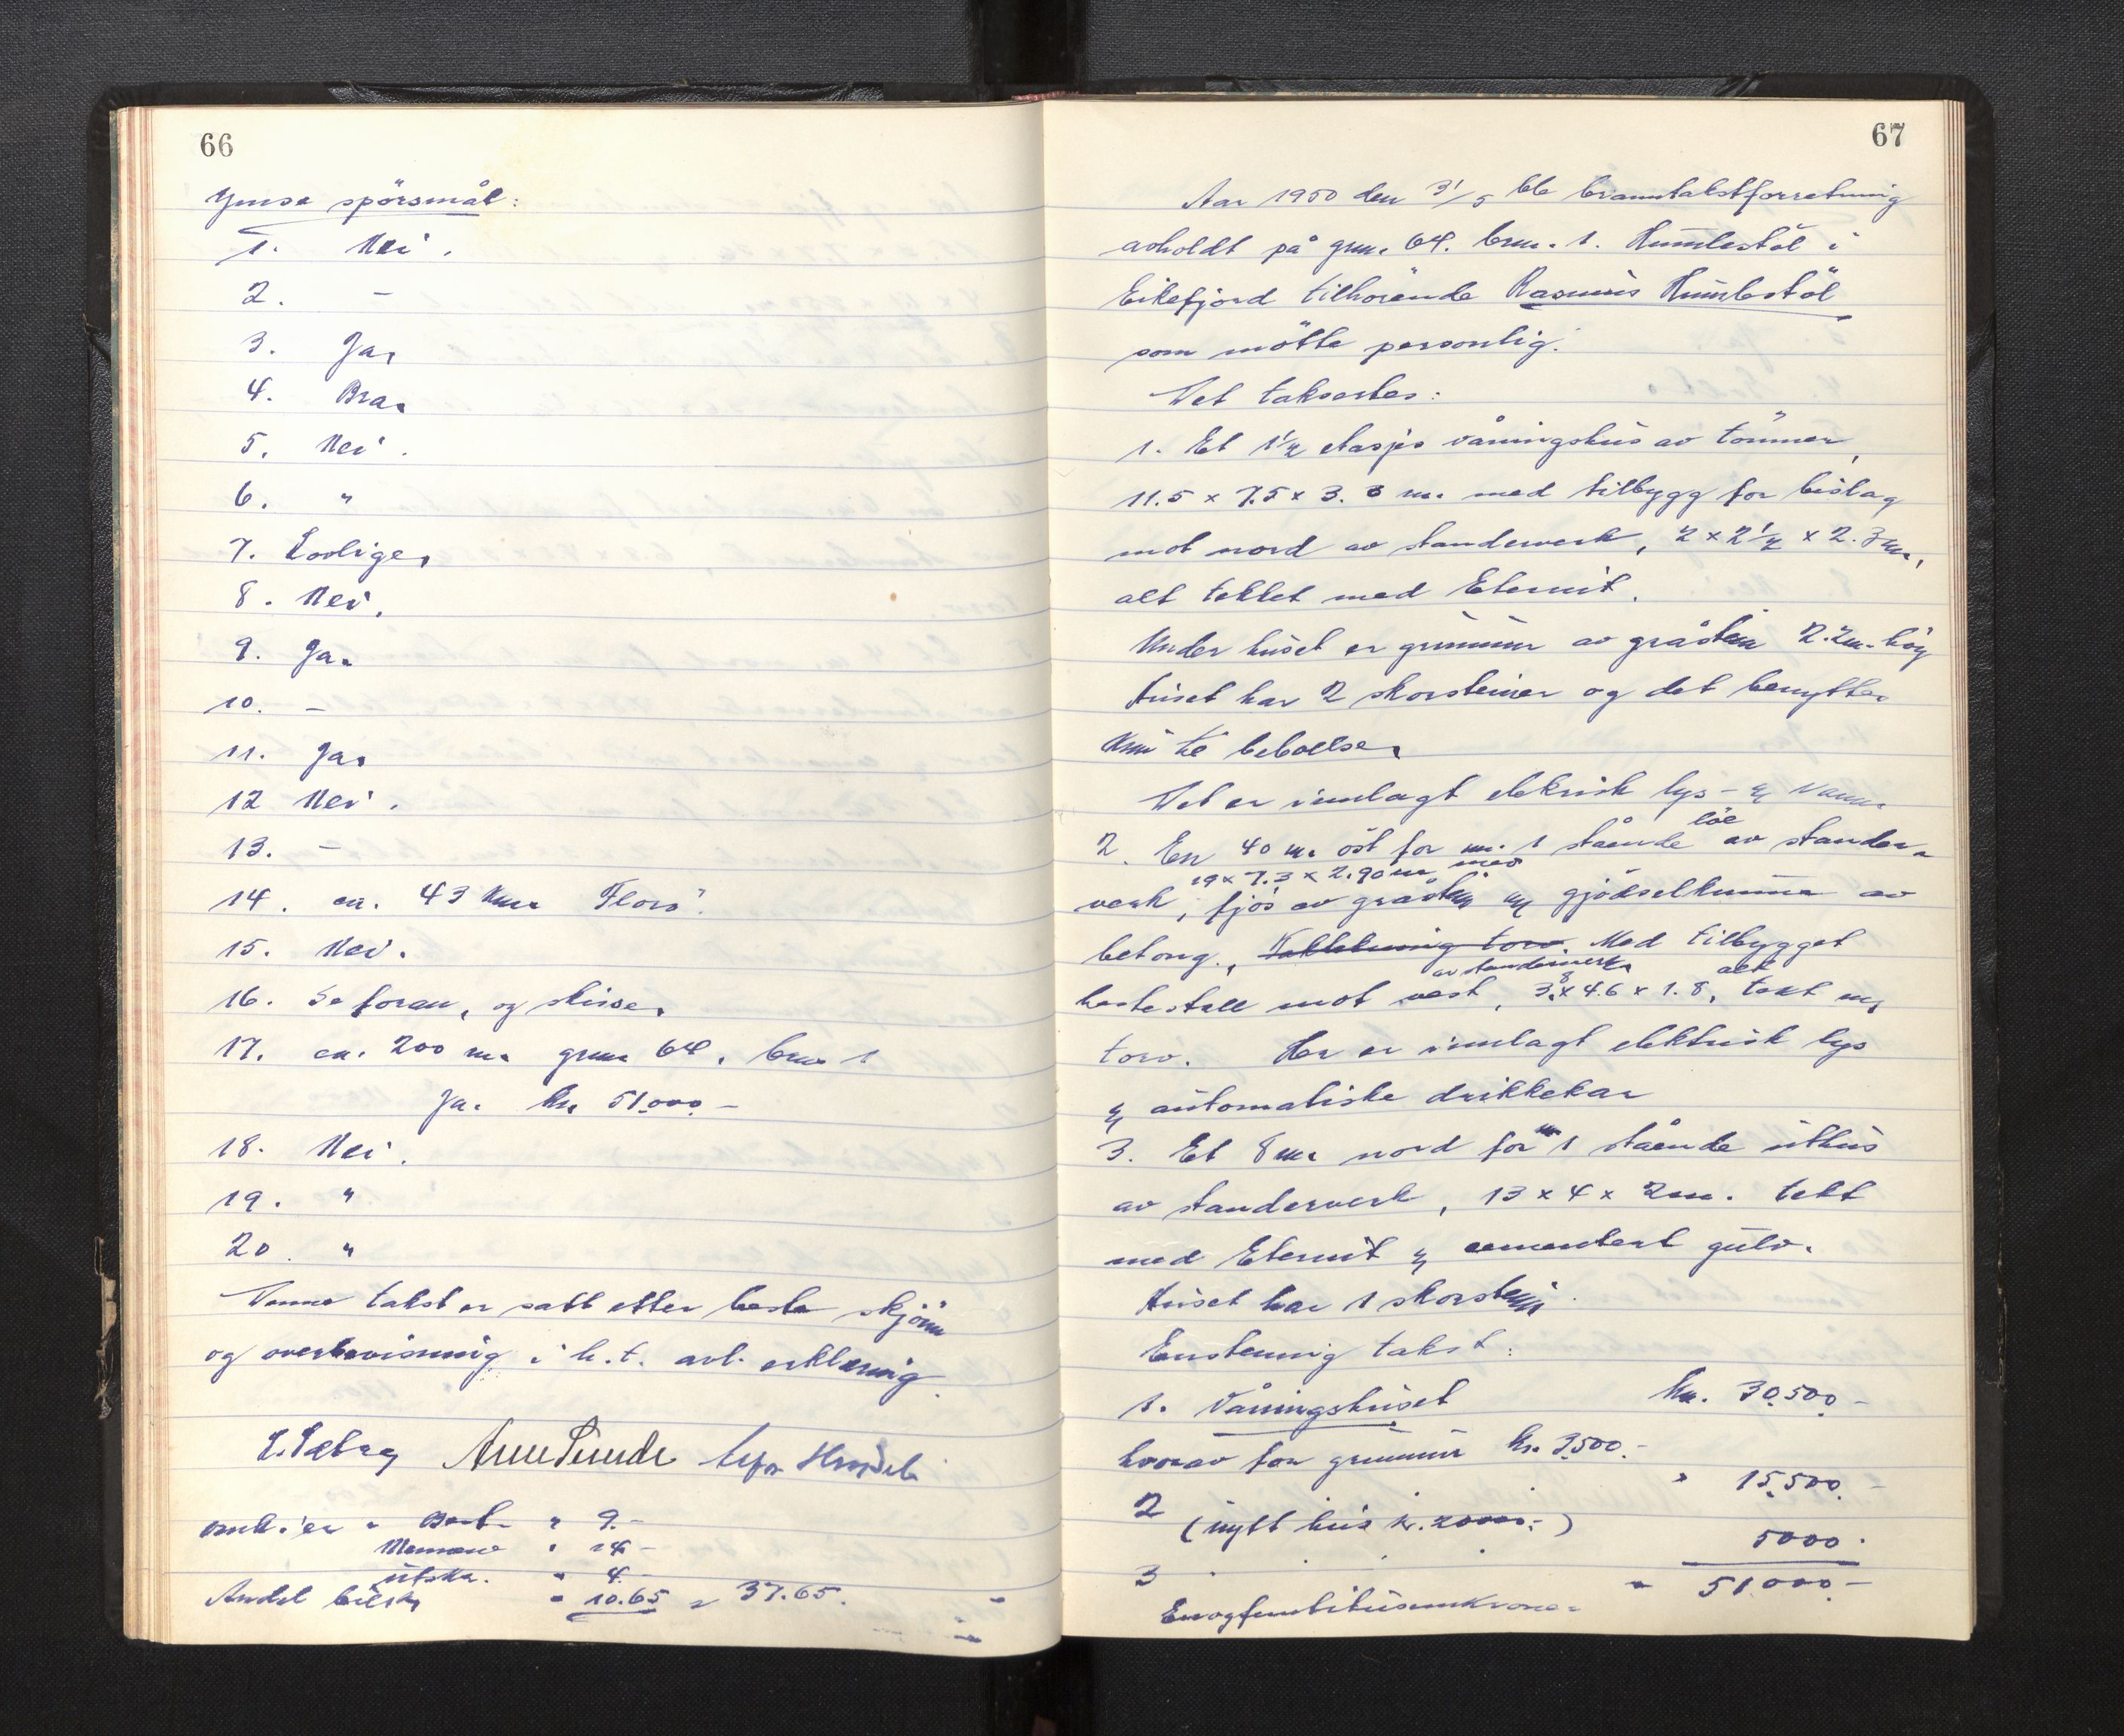 66
Ymse spörsmål:
1. Nei.
2. –
3. Ja.
4. Bra.
5. Nei.
6. "
7. Lovlige.
8. Nei.
9. Ja.
10. –
11. Ja.
12 Nei.
13. –
14. ca. 43 km. Florö.
15. Nei.
16. Se foran, og skisse.
17. ca. 200 m. gnr. 64. bnr 1
Ja. kr. 51.000.–
18. Nei.
19. "
20. "
Denne takst er satt etter beste skjönn
og overbevisning i h.t. avl. erklæring.
Arne Sunde
" 9.–
" 14–
utskr. " 4.–
Andel " 10.65 = 37.65.
67
Aar 1950 den 31/5 ble branntakstforretning
avholdt på gnr. 64. bnr. 1. Humlestöl i
Eikefjord tilhörende Rasmus Humlestöl
som mötte personlig.
Det taksertes:
1. Et 1½ etasjes våningshus av tömmer,
11.5 x 7.5 x 3. m. med tilbygg for bislag
mot nord av standerverk, 2 x 2½ x 2.3 m,
alt tekket med Eternit.
Under huset er grunnmur av gråstein 2.2 m. höy
Huset har 2 skorsteiner og det benyttes
kun til beboelse.
Det er innlagt elektrisk lys – og vann.
2. En 40 m. öst for nr. 1 stående löe av stander-
verk, 19 x 7.3 x 2.90 m, med fjös av gråstein og gjödselkumme av
betong, Taktekning torv. Med tilbygget
hestestall mot vest, av standerverk 3.8 x 4.6 x 1.8, alt tekt m.
torv. Her er innlagt elektrisk lys
og automatiske drikkekar
3. Et 8 m. nord for nr 1 stående uthus
av standerverk, 13 x 4 x 2 m. tekt
med Eternit og cementert gulv.
Huset har 1 skorstein.
Enstemmig takst:
1. Våningshuset kr. 30.500.–
hvorav for grunnmur kr. 3500.–
2 " 15.500.–
(nytt hus kr. 20000.–)
3 5000.
" 51.000.–
Enogfemtitusenkroner